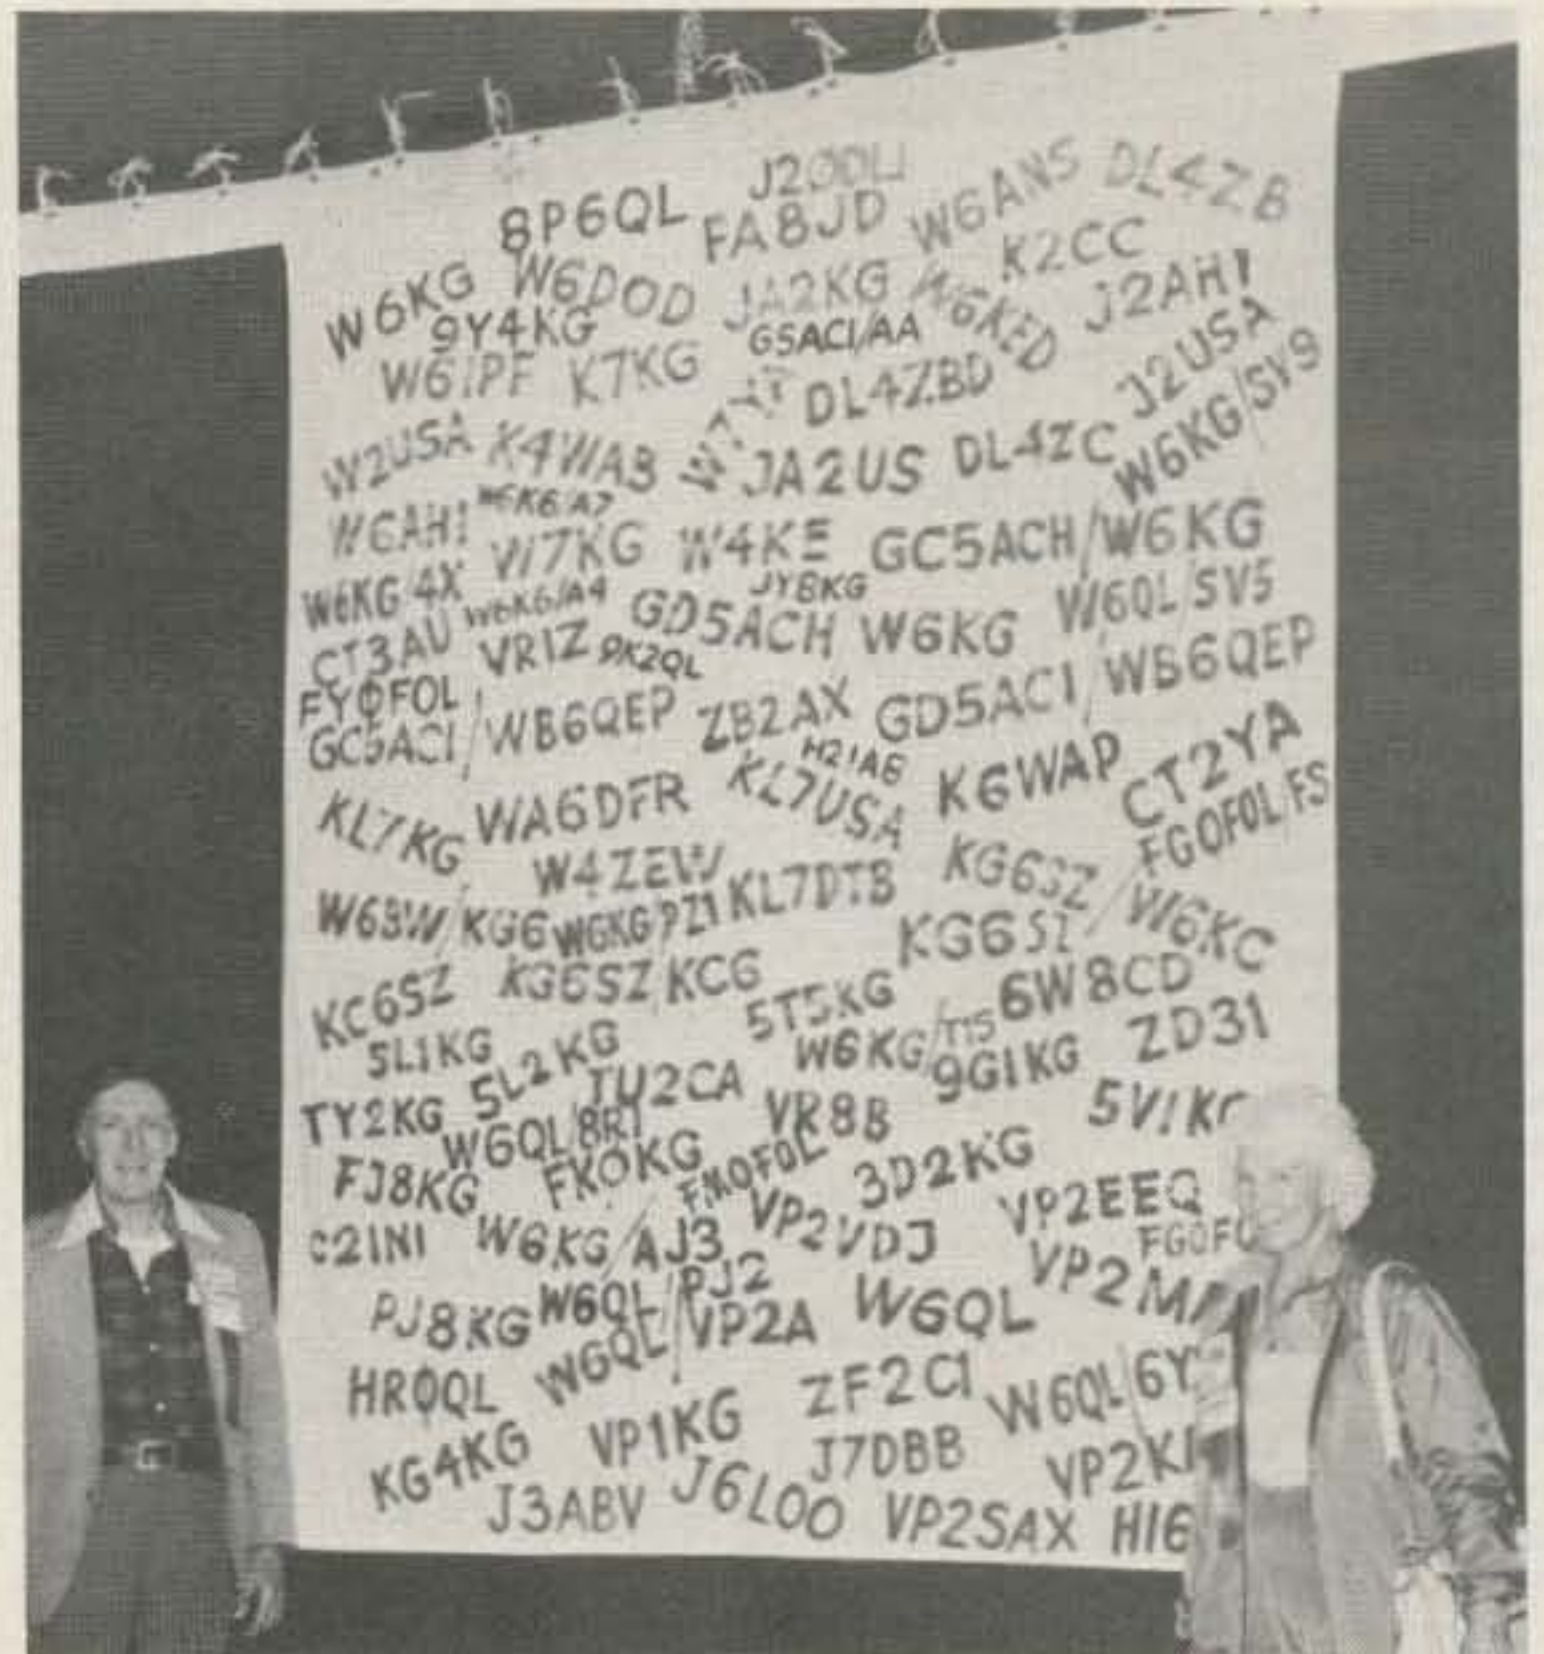 8P6QL
FA8JD W6ANS DL4ZB
W6KG W6DOD JA2KG W6KED K2CC J2AHI
9Y4KG G5ACI/AA
W6IPF K7KG DL4ZBD J2USA
W2USA K4WAB JA2US DL4ZC W6KG/SV9
W6AHI W6KG/A7
W7KG W4KE GC5ACH/W6KG
W6KG/4X W6KG/A4 JY8KG W6QL/SV5
CT3AU VR1Z 9K2QL GD5ACH W6KG
FY0FOL
GC5ACI/WB6QEP ZB2AX GD5ACI/WB6QEP
H21AG
KL7KG WA6DFR KL7USA K6WAP CT2YA
FG0FOL/FS
W4ZEW
KL7DTB KG6SZ
KG6 W6KG/PZ1 KG6SZ/W6KG
KC6SZ KG6SZ/KC6 5T5KG 6W8CD
5L1KG 5L2KG W6KG/TI5 9G1KG ZD31
TY2KG TU2CA VR8B 5V1
W6QL/8R1
FJ8KG FK0KG FM0FOL 3D2KG
C21NI W6KG/AJ3 VP2VDJ VP2EEQ
PJ8KG W6QL/PJ2 W6QL
HR0QL W6QL/VP2A ZF2CI W6QL/6Y
KG4KG VP1KG J7DBB
J3ABV J6LOO VP2SAX HI6